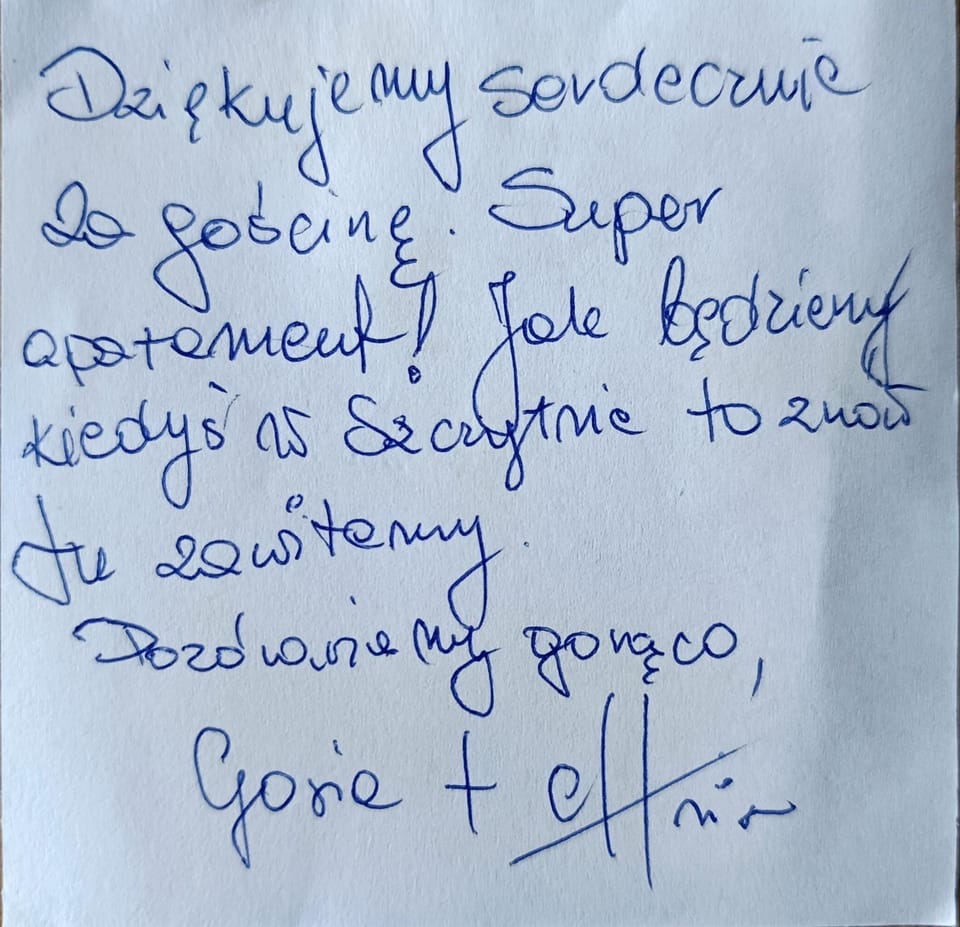 Dziękujemy serdecznie
za gościnę. Super
apartament! Jak będziemy
kiedyś w Szczytnie to znów
tu zawitamy.
Pozdrawiamy gorąco,
Gosia +